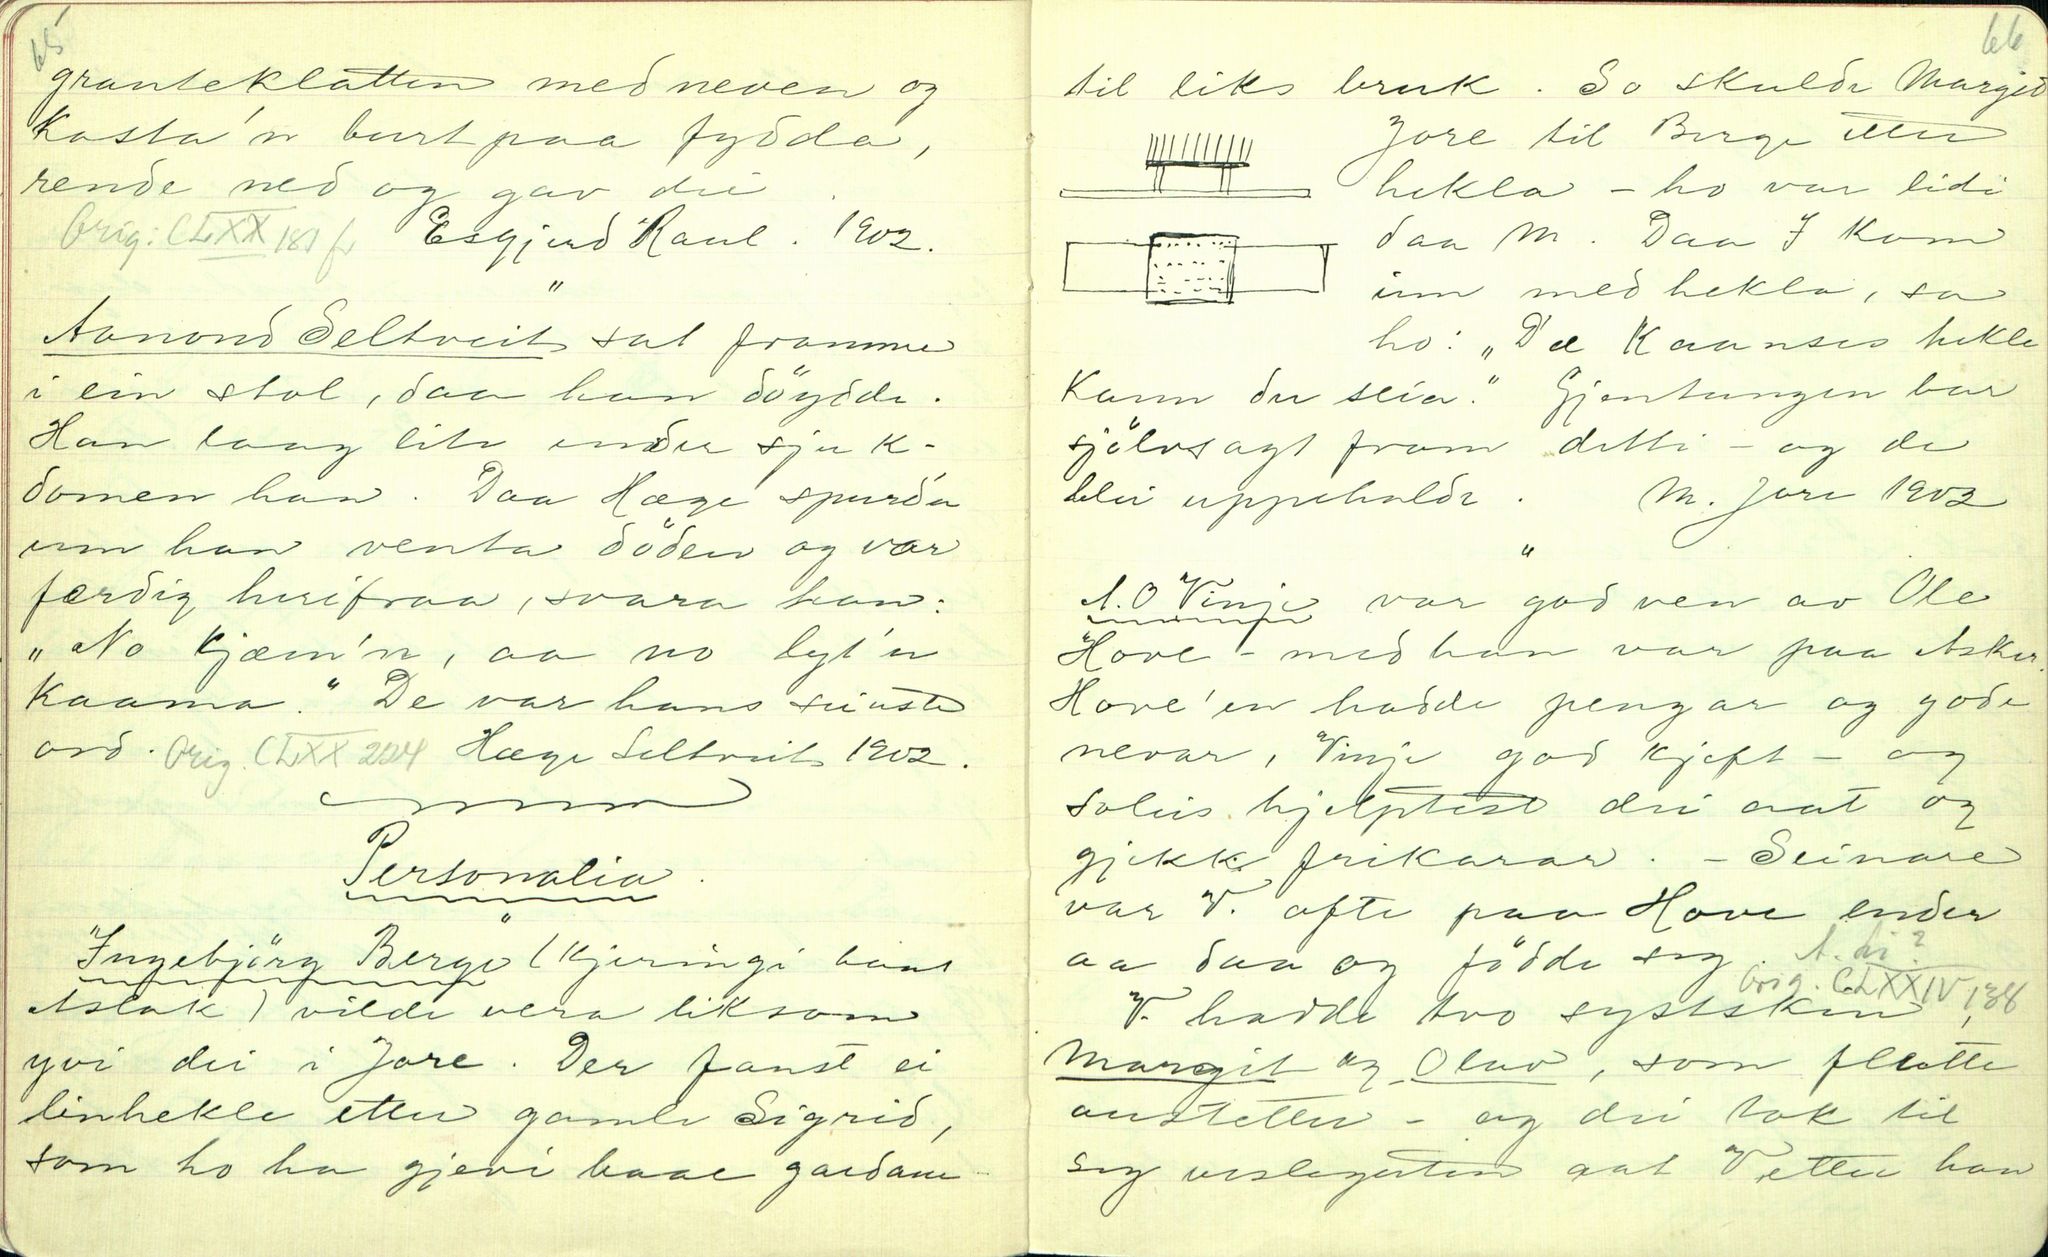 65
granteklatten med neven og
kasta'n burt paa fydda,
rende ned og gav dei.
Orig: CLXX 181 f. Esgjerd Raul. 1902.
"
Aanond Seltveit sat framme
i ein stol, daa han döydde.
Han laag lite under sjuk-
domen han. Daa Hæge spurde
um han venta döden og var
færdig herifraa, svara han:
„No kjæm'n, aa no lyt'n
kaama." De var hans seinste
ord. Orig. CLXX 204 Hæge Seltveit 1902.
Personalia.
"
Ingebjörg Berge (kjeringi hans
Aslak) vilde vera liksom
yvi dei i Jore. Der fanst ei
linhekle etter gamle Sigrid,
som ho ha gjevi baae gardane
66
til liks bruk. So skulde Margjit
Jore til Berge etter
hekla – ho var lidi
daa M. Daa J kom
inn med hekla, sa
ho: „Dæ Kaanses hekle
kann du seia." Gjentungen bar
sjölvsagt fram detti – og de
blei uppehalde. M. Jore 1902
"
A. O Vinje var god ven av Ole
Hove – med han var paa Asker.
Hove'en hadde pengar og gode
nevar, Vinje god kjeft – og
soleis hjelptest dei aat og
gjekk frikarar. – Seinare
var V. ofte paa Hove ender
aa daa og födde seg. A. li?
Orig. CLXXIV, 138
V. hadde tvo systsken,
Margit og Olav, som flutte
austetter – og dei tok til
seg vesleguten aat V. etter han